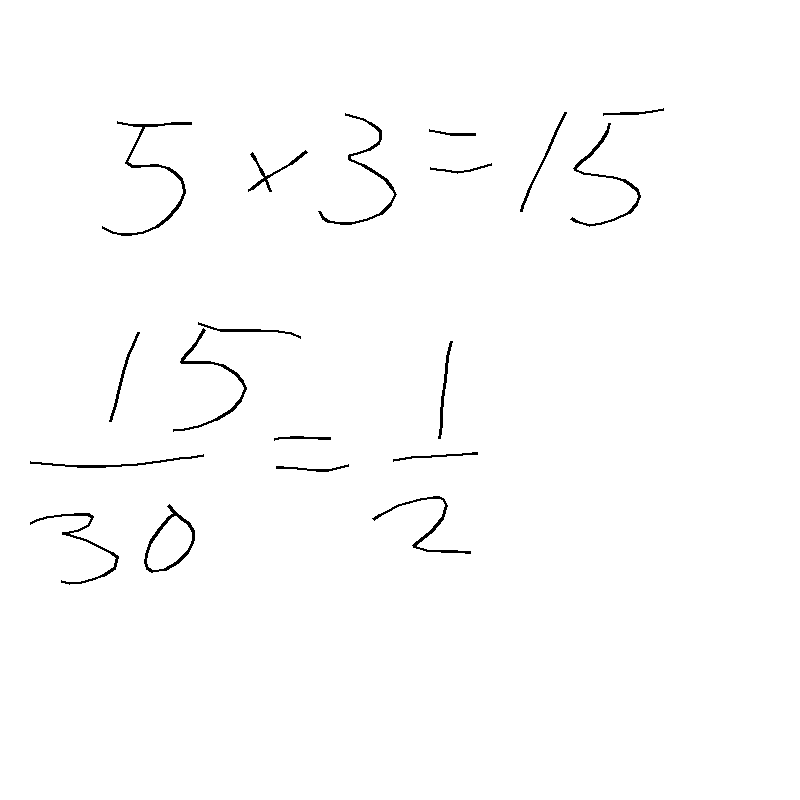 5 × 3 = 15
15/30 = 1/2